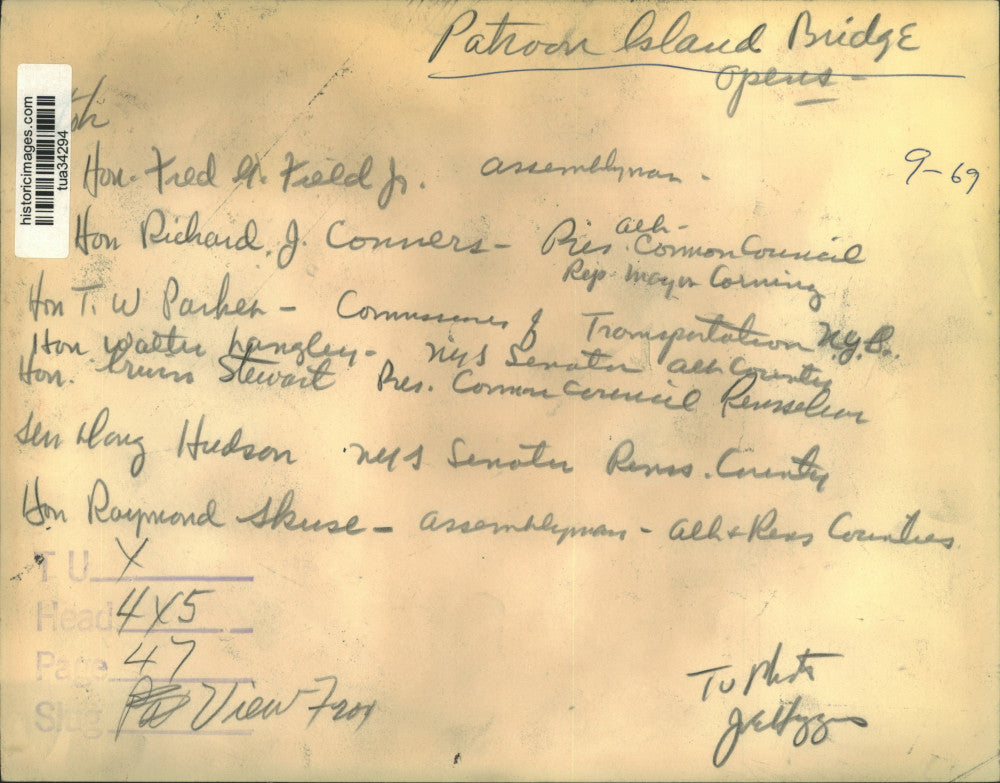 Patroon Island Bridge
opens -
9-69
historicimages.com
tua34294
Hon. Fred G. Field Jr. assemblyman -
Hon Richard J. Conners - Pres. Alb - Common Council
Rep Mayor Corning
Hon T. W Parker - Commissioner of Transportation N.Y.S.
Hon Walter Langley - NYS Senator Alb County
Hon. Stewart Pres. Common Council Rensselaer
Sen Doug Hudson NYS Senator Renss. County
Hon Raymond Skuse - assemblyman - Alb & Rens Counties
T U X
Head 4X5
Page 47
Slug View From
TU Photo